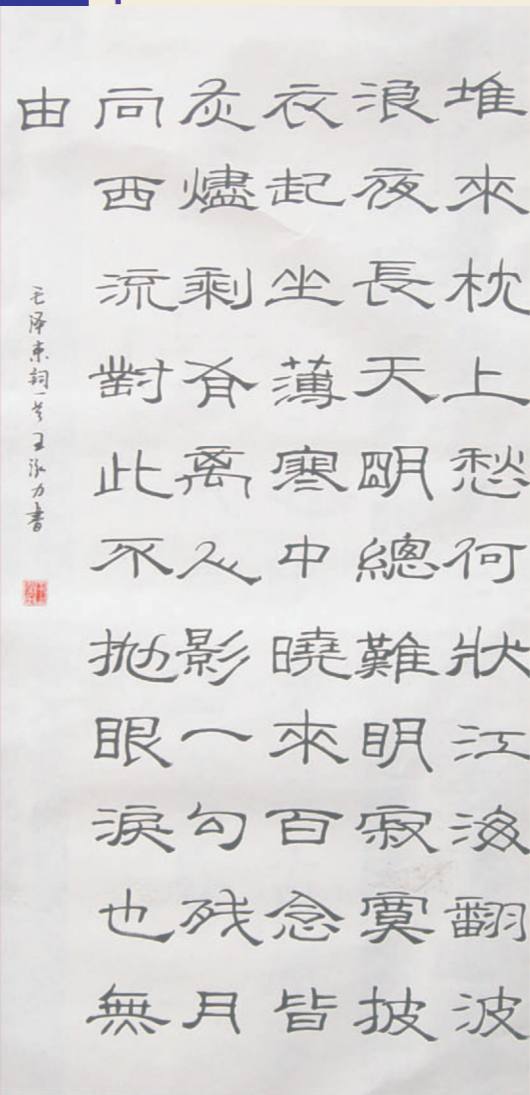 堆來枕上愁何狀江海翻波
浪夜長天明總難明寂寞披
衣起坐薄寒中曉來百念皆
灰燼剩有离人影一勾残月
向西流對此不抛眼淚也無
由
毛泽東詞一首 王泓力書